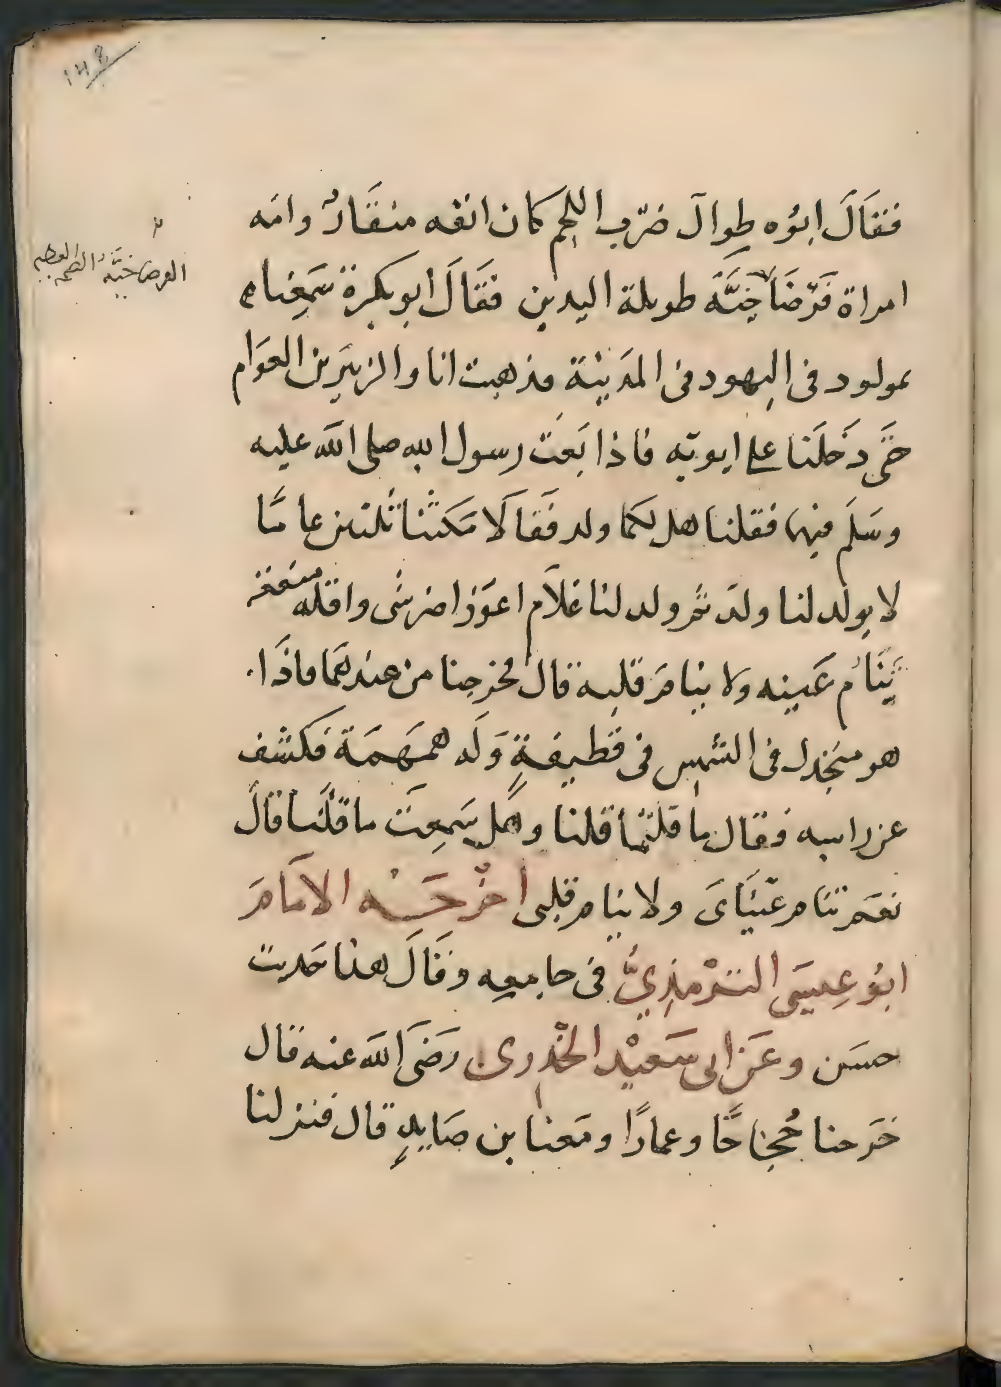 ١٤٨
فقَالَ ابُوه طِوالَ ضرب اللحم كان انفه منقَارُ وامَه
امراة فَرْضَاخِيَّة طويلة اليدين فقَالَ ابو بكرة سَمِعنا
الفرضاخيَّة الضخمه العظيمه
بمولود فى اليهود فى المدَينة فذهبت انا والزبَير بن العوَام
حتَّى دَخلَنا على ابويه فاذا نعَت رسول الله صلى الله عليه
وسَلَم فيهما فقلنا هل لكما ولد فَقالَا مَكثنا ثَلثين عامًا
لا يولَد لنا ولَد ثمَّ ولد لنا غلاَم اعوَر اضرشى واقله منفعة
يَنَامُ عَينه ولا ينامَ قلبه قال فخرجنا من عندهمَا فاذَا
هو منجدل فى الشمس فى قطيفةٍ وَلَه همهَمَة فكشف
عن راسه فقال ما قلتمَا قلنا وهَل سَمِعتَ ما قلنَا قالَ
نعَم تنام عَيْنَاىَ ولا ينام قلبى أخْرجَه الامَامَ
ابُو عِيسَى الترْمذِيُّ فى جامِعه وقَالَ هذا حَديث
حسَن وعَن ابى سَعيْد الخُدرى رَضَى اللَه عنه قال
خَرجنا حُجاجًا وعمارًا ومَعنا بن صَايدٍ قال فنزلنا